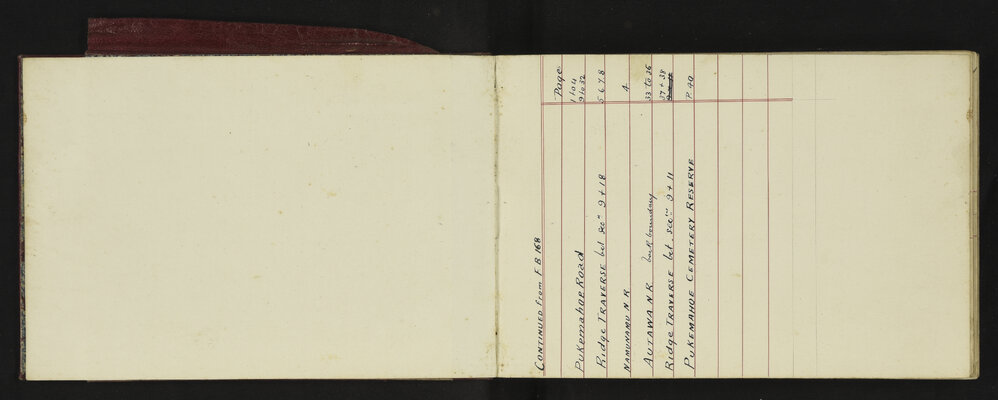 CONTINUED from F B 168
Page
Pukemahoe Road 1 to 4
9 to 32
Ridge TRAVERSE bet secⁿ 9 + 18 5 6 7 8
NAMUNAMU N R 4
AUTAWA N R back boundary 33 to 36
Ridge TRAVERSE bet. secⁿˢ 9 + 11 37 + 38
PUKEMAHOE CEMETERY RESERVE P. 40